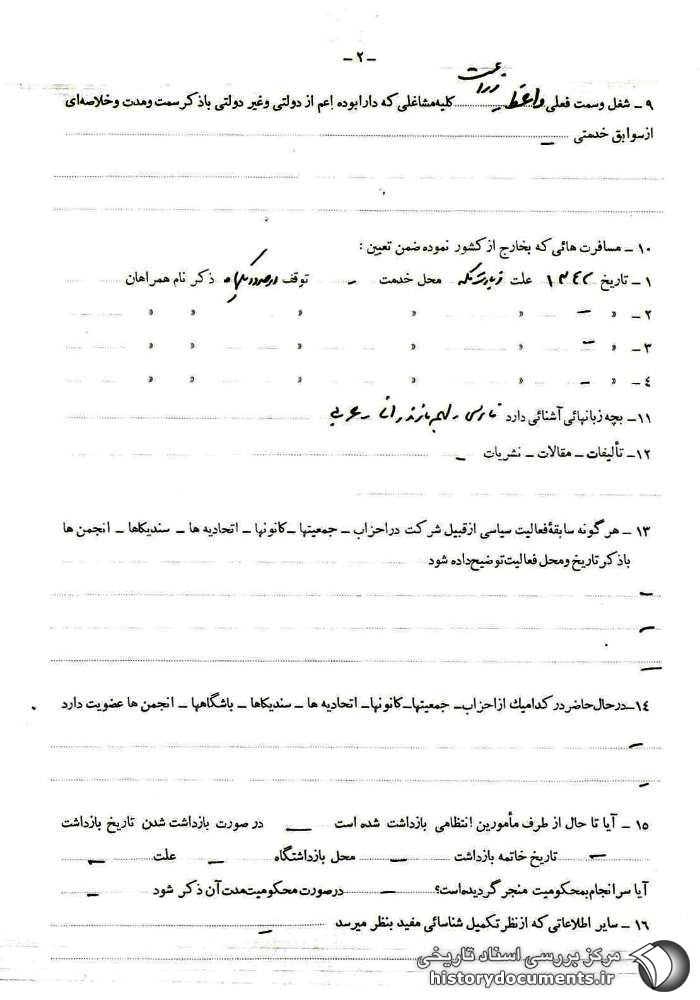 - ۲ -
زراعت
۹ - شغل وسمت فعلی واعظ کلیه مشاغلی که دارا بوده اعم از دولتی وغیر دولتی با ذکر سمت ومدت وخلاصه‌ای
از سوابق خدمتی –
۱۰ - مسافرت هائی که بخارج از کشور نموده ضمن تعیین :
۱ - تاریخ ۱۳۴۲ علت زیارت مکه محل خدمت - توقف ذکر نام همراهان
۲ - » – » » » » »
۳ - » – » » » » »
۴ - » – » » » » »
۱۱ - بچه زبانهائی آشنائی دارد فارسی - لهجه مازندرانی - عربی
۱۲ - تألیفات - مقالات - نشریات –
۱۳ - هرگونه سابقهٔ فعالیت سیاسی از قبیل شرکت در احزاب - جمعیتها - کانونها - اتحادیه ها - سندیکاها - انجمن ها
با ذکر تاریخ ومحل فعالیت توضیح داده شود
–
–
–
۱۴ - در حال حاضر در کدامیك از احزاب - جمعیتها - کانونها - اتحادیه ها - سندیکاها - باشگاهها - انجمن ها عضویت دارد
–
–
۱۵ - آیا تا حال از طرف مأمورین انتظامی بازداشت شده است – در صورت بازداشت شدن تاریخ بازداشت
– تاریخ خاتمه بازداشت – محل بازداشتگاه – علت –
آیا سرانجام بمحکومیت منجر گردیده‌است؟ – در صورت محکومیت مدت آن ذکر شود –
۱۶ - سایر اطلاعاتی که از نظر تکمیل شناسائی مفید بنظر میرسد –
مرکز بررسی اسناد تاریخی
historydocuments.ir